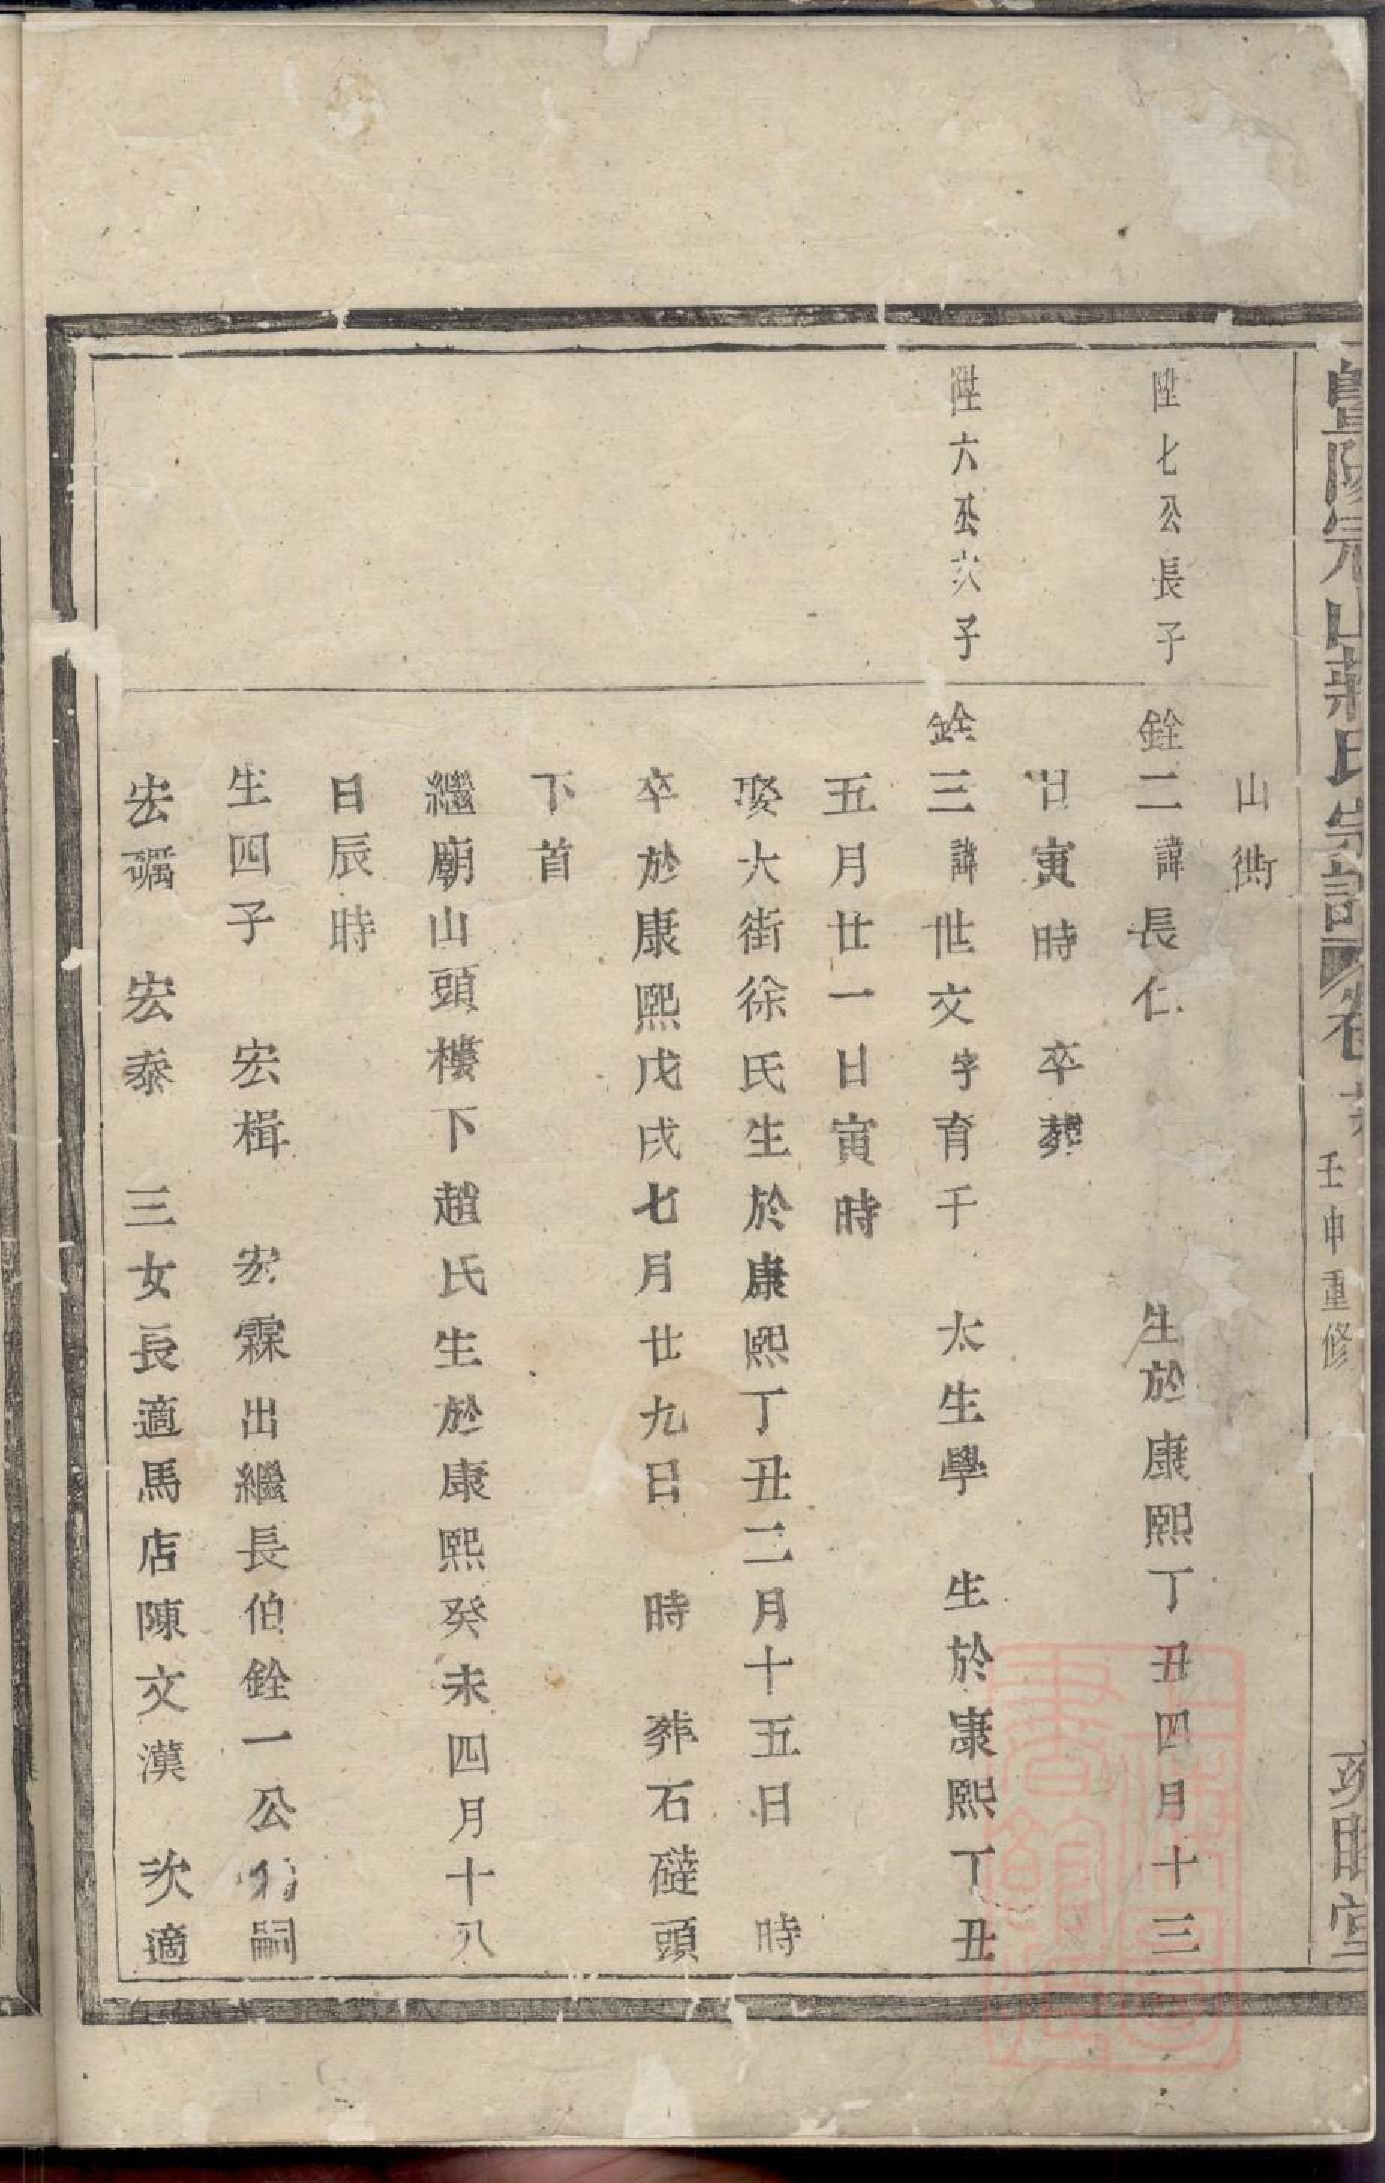 暨陽宗山蔣氏宗譜 卷 壬申重修 敦睦堂
山衖
陞七公長子 銓二諱長仁 生於康熙丁丑四月十三
日寅時 卒葬
陞六公次子 銓三諱世文字育千 太生學 生於康熙丁丑
五月廿一日寅時
娶大街徐氏生於康熙丁丑二月十五日 時
卒於康熙戊戌七月廿九日 時 葬石磓頭
下首
繼廟山頭樓下趙氏生於康熙癸未四月十八
日辰時
生四子 宏楫 宏霖出繼長伯銓一公 嗣
宏礪 宏泰 三女長適馬店陳文漢 次適